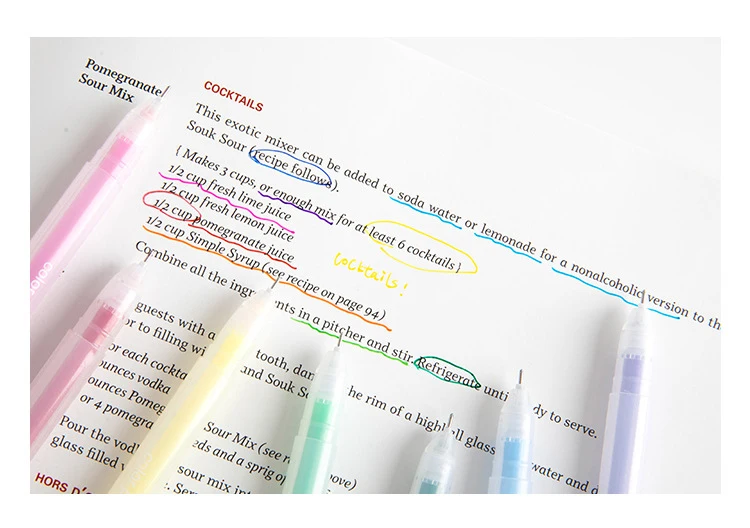 Pomegranate
Sour Mix
COCKTAILS
This exotic mixer can be added to soda water or lemonade for a nonalcoholic version to th
Souk Sour (recipe follows).
{ Makes 3 cups, or enough mix for at least 6 cocktails }
1/2 cup fresh lime juice
1/2 cup fresh lemon juice
1/2 cup pomegranate juice
1/2 cup Simple Syrup (see recipe on page 94)
cocktails!
Combine all the ingr nts in a pitcher and stir. Refrigerate unti dy to serve.
guests with a tooth, dar he rim of a highball glass water and
or to filling wi and Souk S
or each cockta
ounces vodka
ounces Pomeg Sour Mix (see r ove)
or 4 pomegra eds and a sprig of
Pour the vod sour mix int
glass filled w . Serv
HORS D'O
color